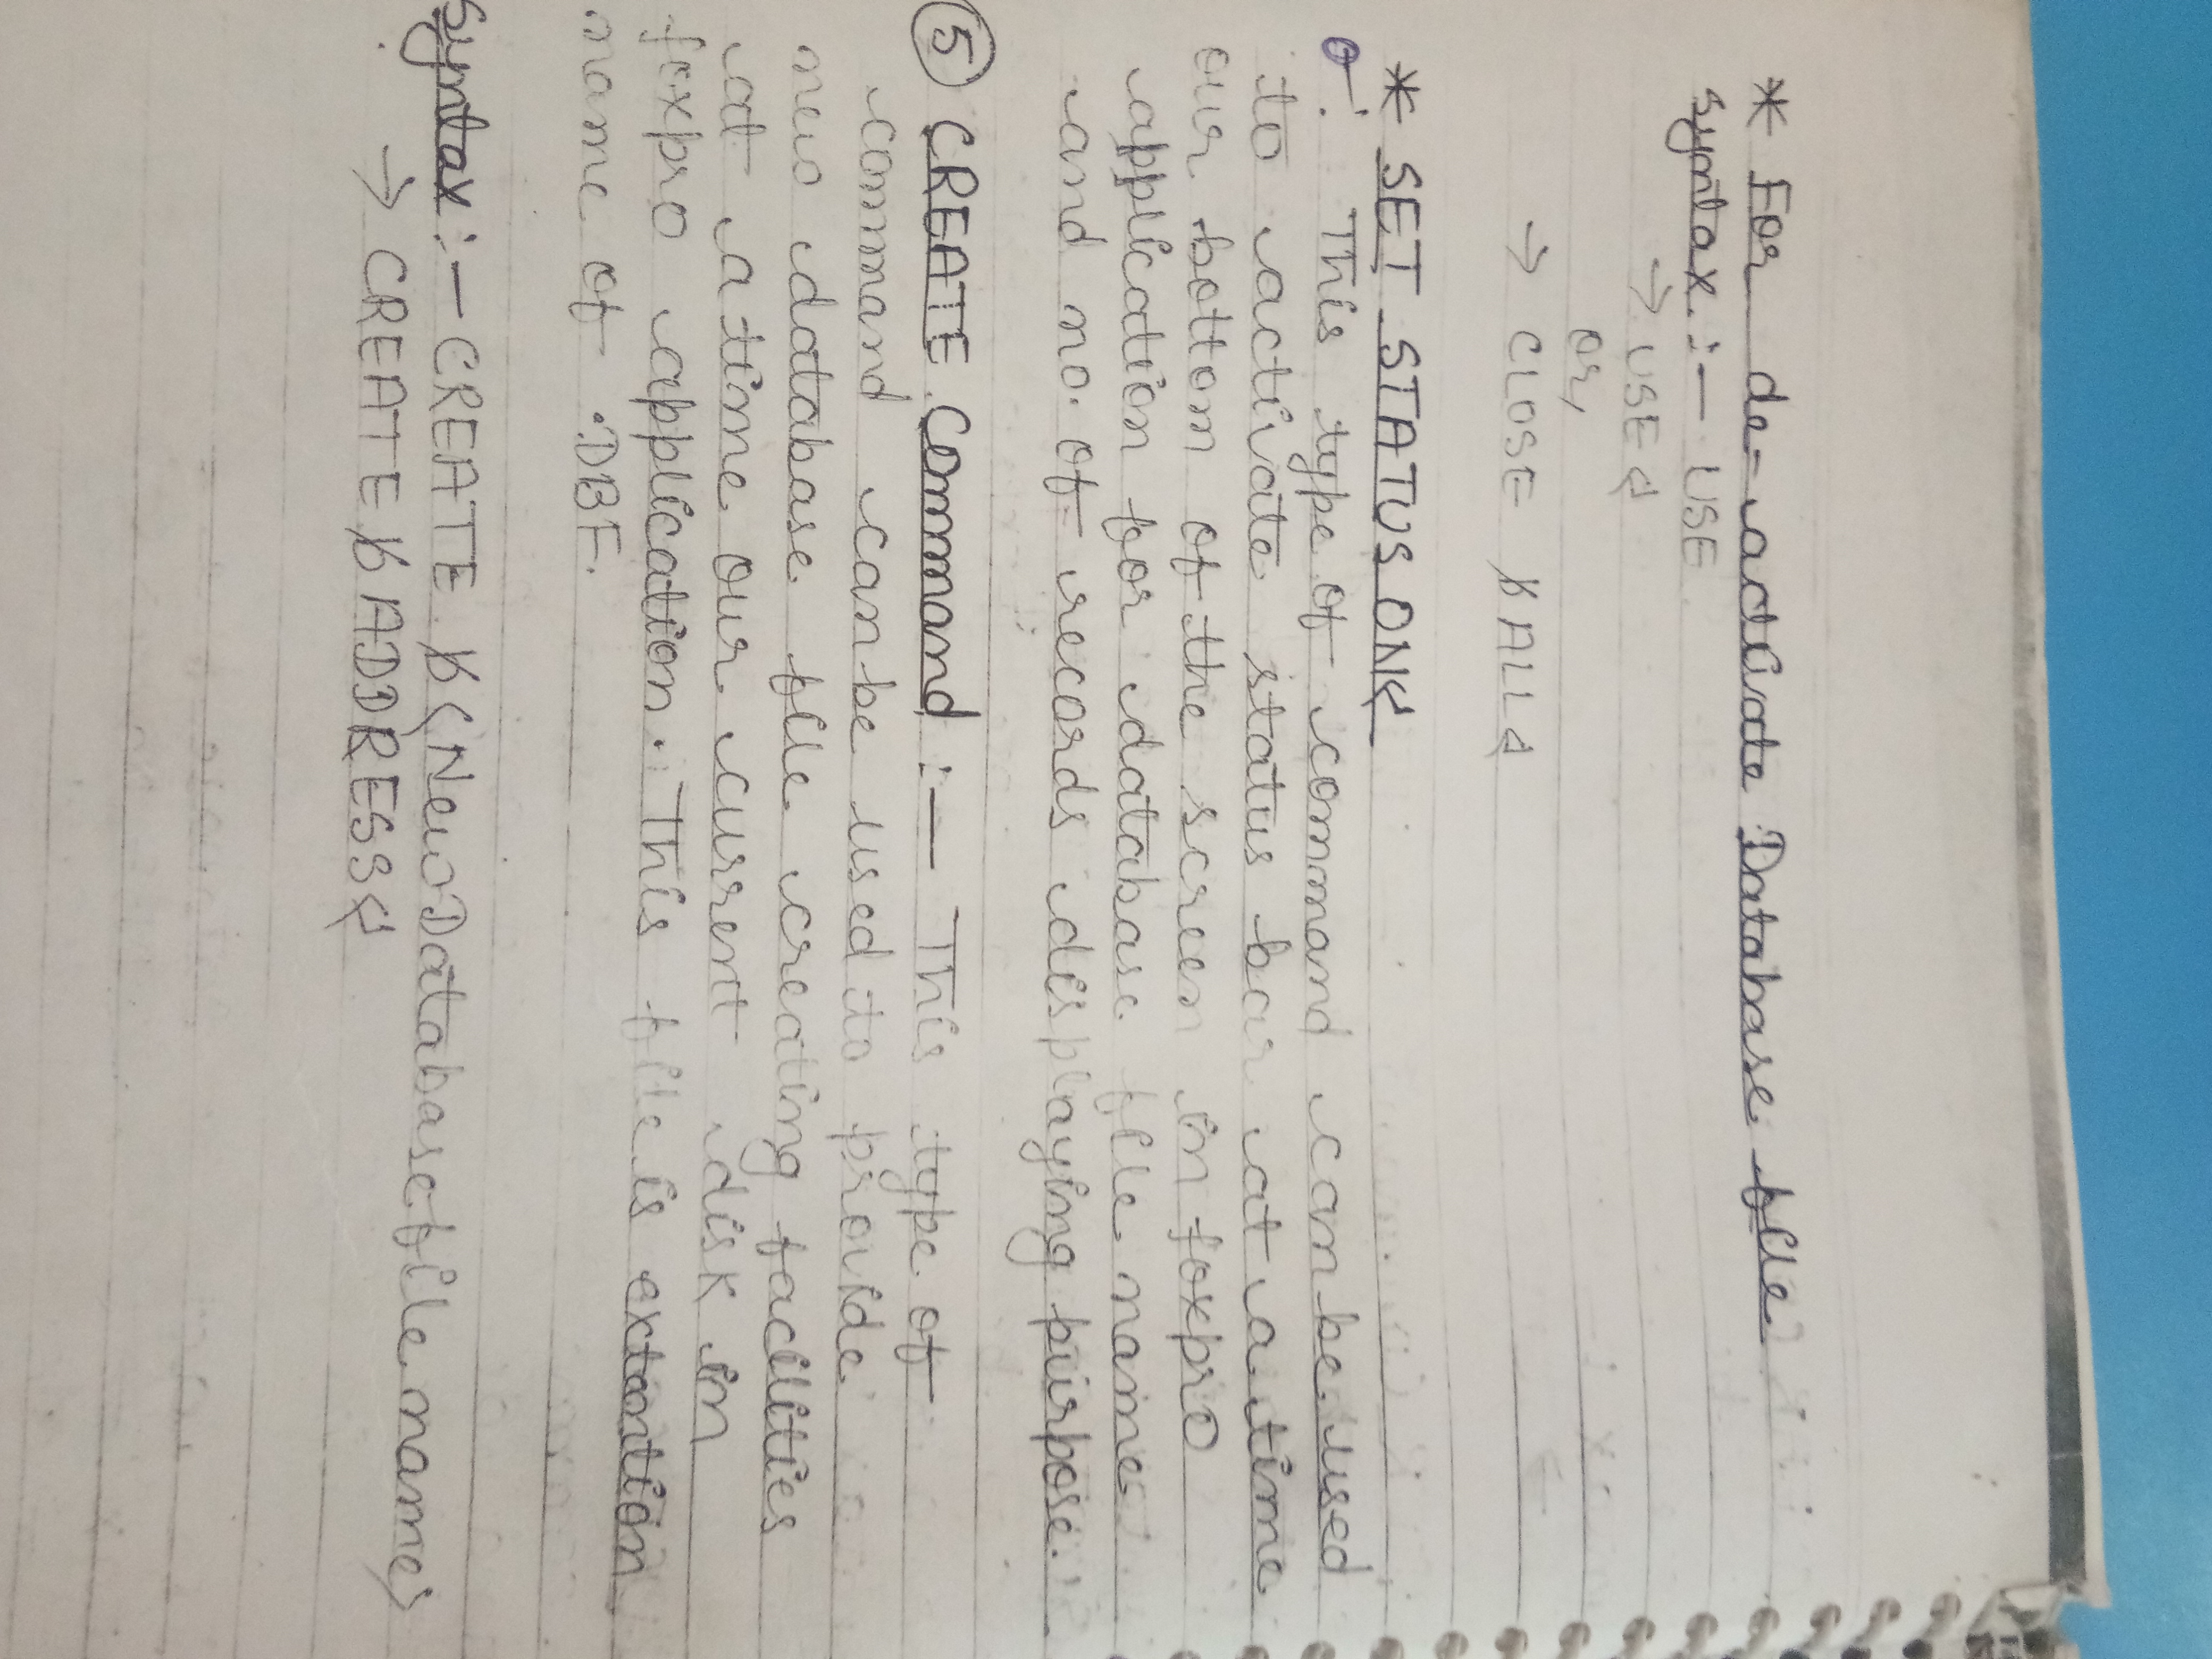 * For de-activate Database file
Syntax :- USE
→ USE↲
or,
→ CLOSE ␢ ALL↲
* SET STATUS ON↲
:- This type of command can be used
to activate status bar at a time
our bottom of the screen in foxpro
application for database file name
and no. of records displaying purpose.
⑤ CREATE Command :- This type of
command can be used to provide
new database file creating facilities
at a time our current disk in
foxpro application. This file is extantion
name of .DBF.
Syntax :- CREATE ␢ <New Database file name>
→ CREATE ␢ ADDRESS↲